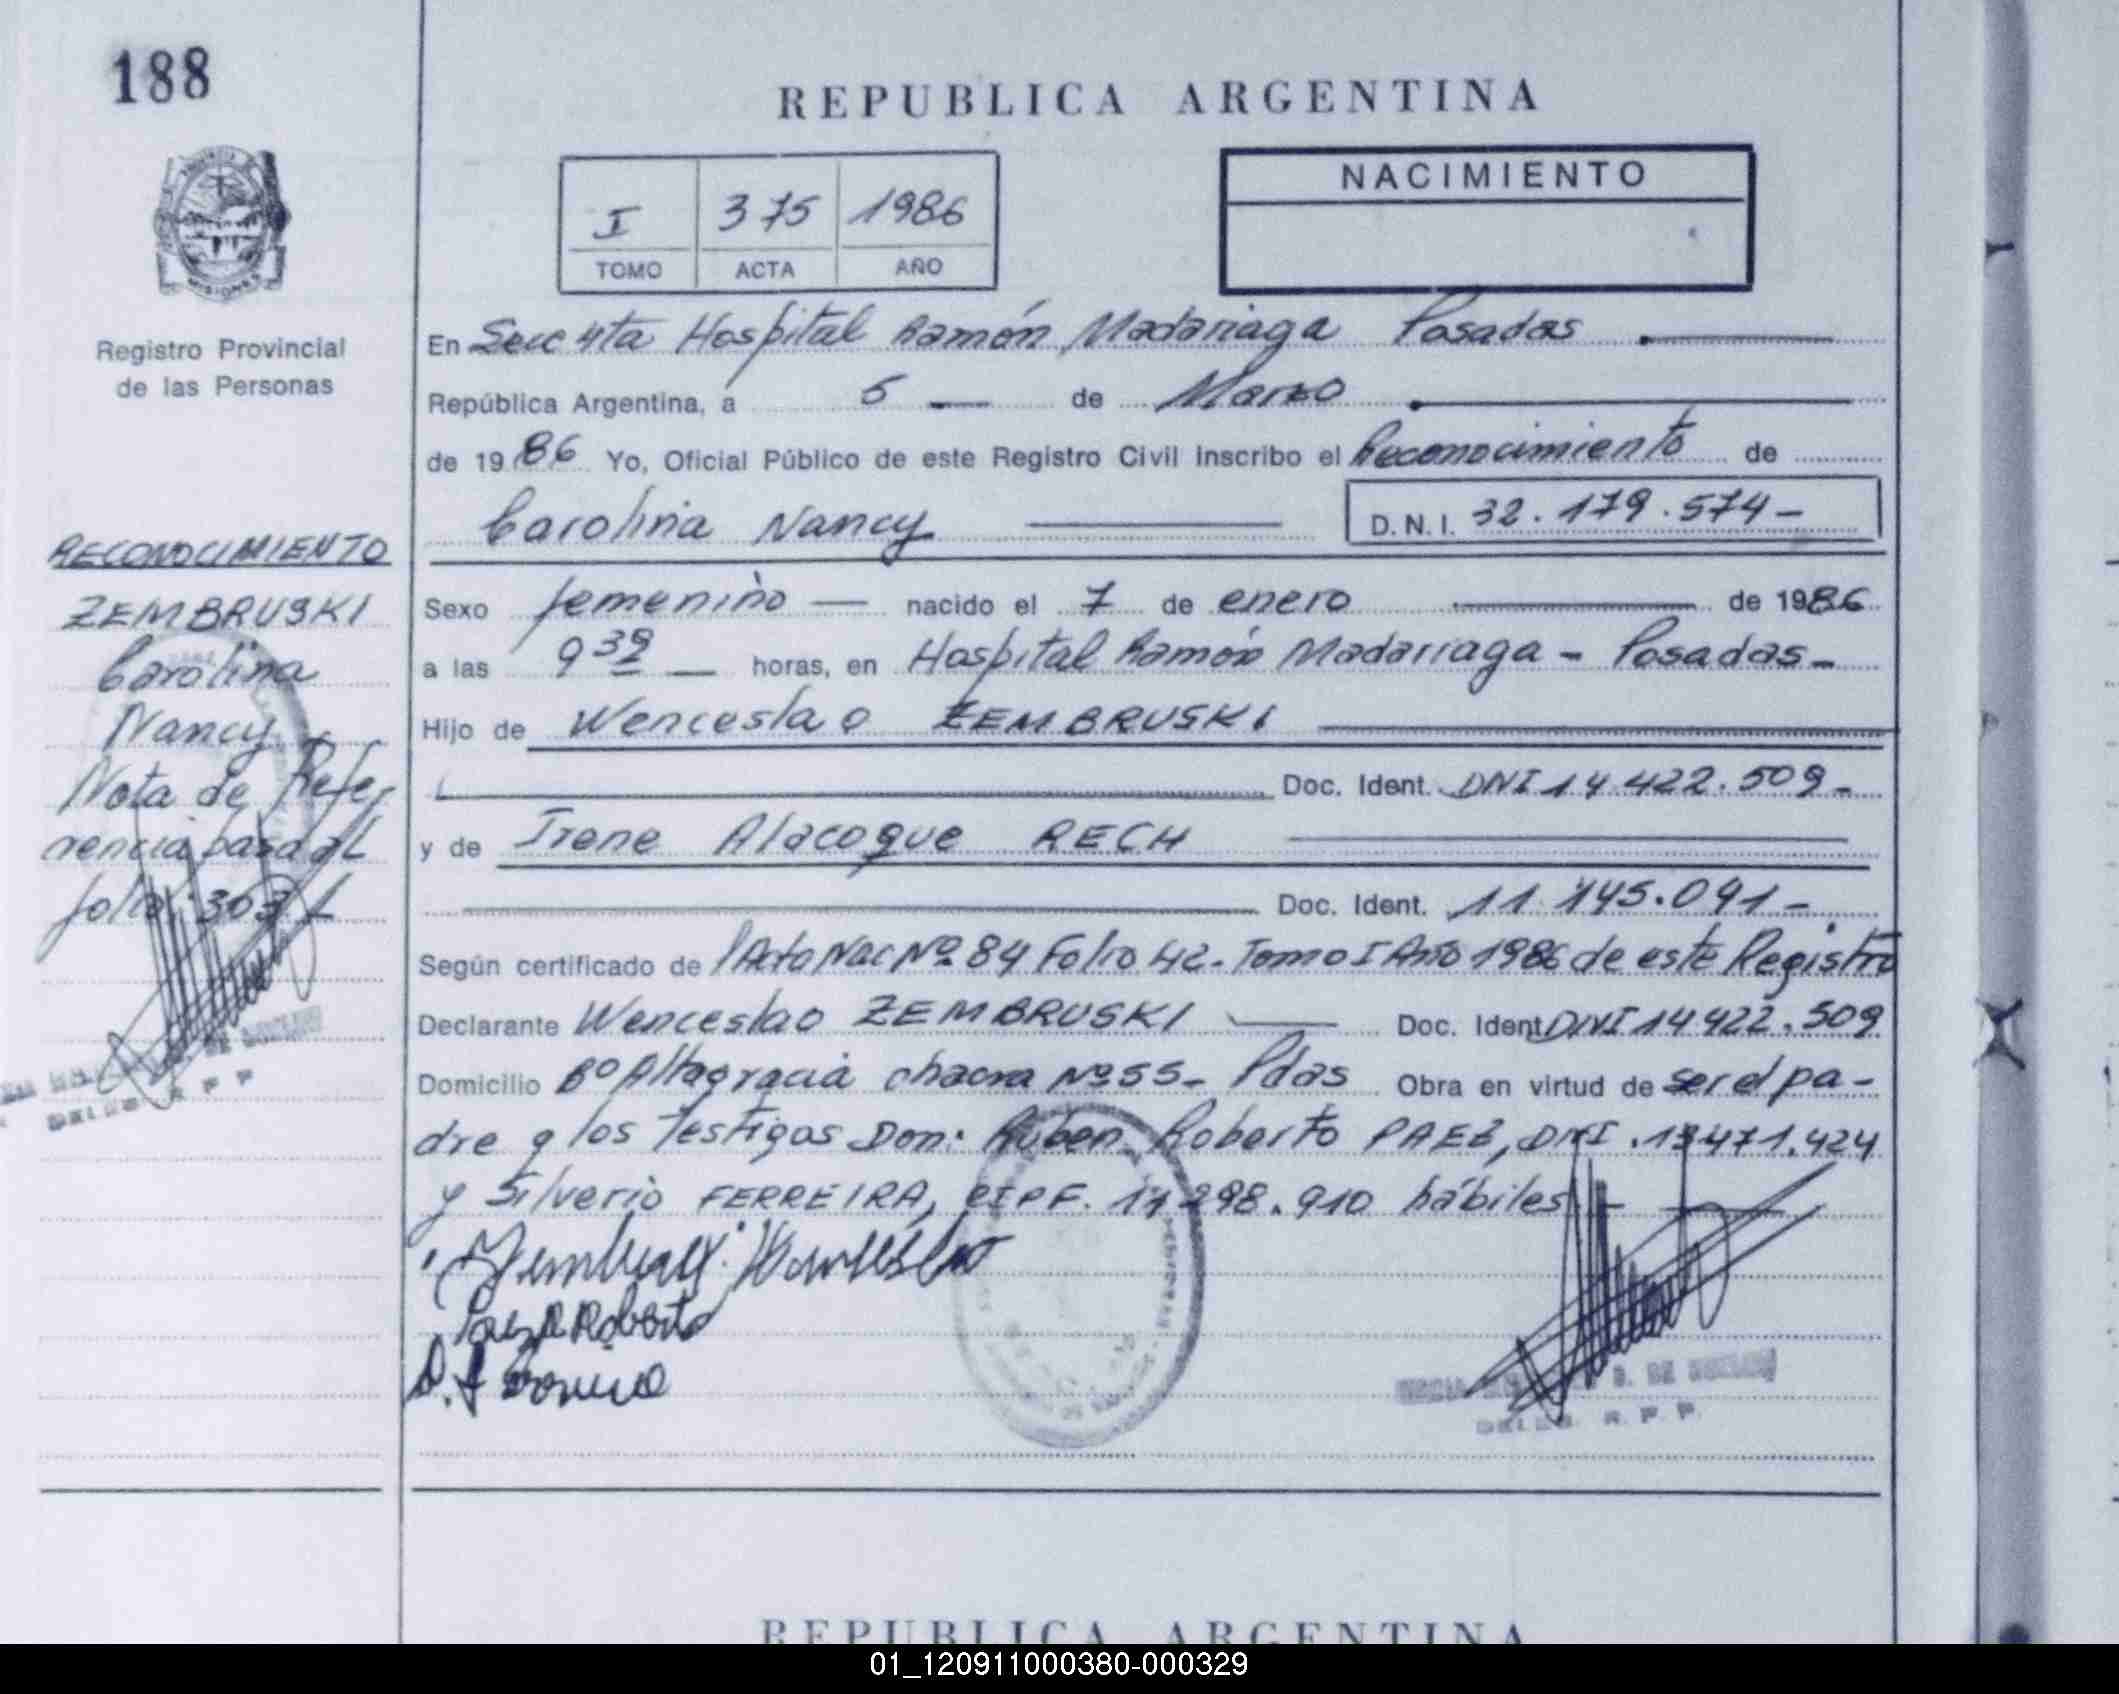 188
REPUBLICA ARGENTINA
I 375 1986
TOMO ACTA AÑO
NACIMIENTO
MISIONES
Registro Provincial
de las Personas
En Secc 4ta Hospital Ramón Madariaga Posadas
República Argentina, a 5 de Marzo
de 1986 Yo, Oficial Público de este Registro Civil inscribo el Reconocimiento de
Carolina Nancy D.N.I. 32.179.574-
RECONOCIMIENTO
ZEMBRUSKI
Carolina
Nancy
Nota de Refe
rencia pasa al
folio 303
Sexo femenino nacido el 7 de enero de 1986
a las 9 39 horas, en Hospital Ramón Madariaga - Posadas-
Hijo de Wenceslao ZEMBRUSKI
Doc. Ident. DNI 14 422.509-
y de Irene Alacoque RECH
Doc. Ident. 11 145.041-
Según certificado de Acta Nac Nº 84 Folio 42- Tomo I Año 1986 de este Registro
Declarante Wenceslao ZEMBRUSKI Doc. Ident DNI 14 422.509
Domicilio Bº Altagracia chacra Nº 55- Pdas Obra en virtud de ser el pa-
dre y los testigos Don: Ruben Roberto PAEZ, DNI. 13471.424
y Silverio FERREIRA, 298.910 hábiles
REPUBLICA ARGENTINA
01_120911000380-000329